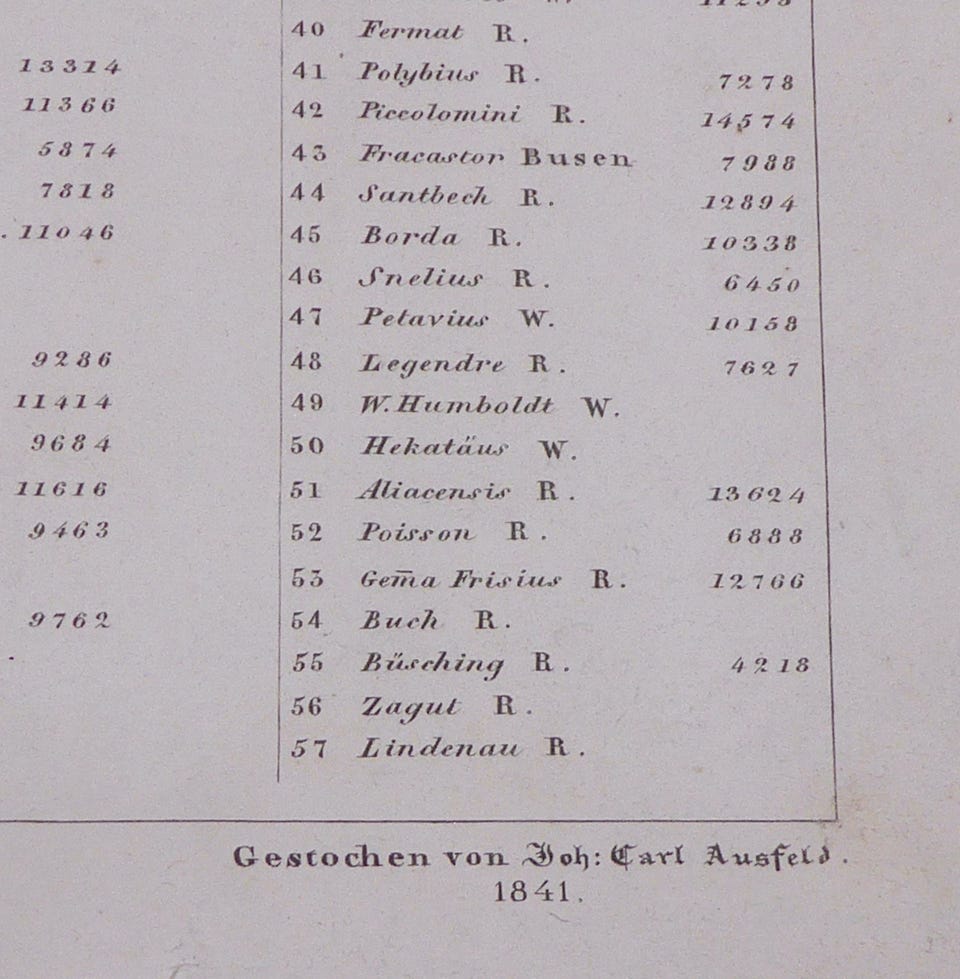 13314
11366
5874
7818
. 11046
9286
11414
9684
11616
9463
9762
40 Fermat R.
41 Polybius R. 7278
42 Piccolomini R. 14574
43 Fracastor Busen 7988
44 Santbech R. 12894
45 Borda R. 10338
46 Snelius R. 6450
47 Petavius W. 10158
48 Legendre R. 7627
49 W. Humboldt W.
50 Hekatäus W.
51 Aliacensis R. 13624
52 Poisson R. 6888
53 Gem̄a Frisius R. 12766
54 Buch R.
55 Büsching R. 4218
56 Zagut R.
57 Lindenau R.
Gestochen von Joh: Carl Ausfeld.
1841.